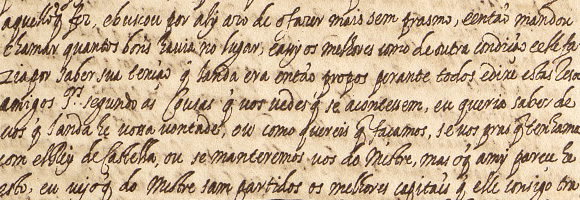 aquello q̃ foz, e buscou por aly azo de o fazer mais sem prasmo, e entaõ mandou
chamar quantos bons havia no lugar, e assy os melhores como de outra condiçaõ e elle fa
zia por saber sua tençaõ q̃ tanda era entaõ propos perante todos e dixe estas
amigos Srs. segundo ás Cousas q̃ vos vedes q̃ se acontessem, eu queria saber de
vos q̃ tanda he vossa vontade, ou como quereis q̃ façamos, se vos praz q̃ tenhamo
com elRey de Castella, ou se manteremos vos do Mestre, mas o q̃ amy pareceu he
esto, eu vejo q̃ do Mestre sam partidos os melhores capitaĩs q̃ elle consigo tra